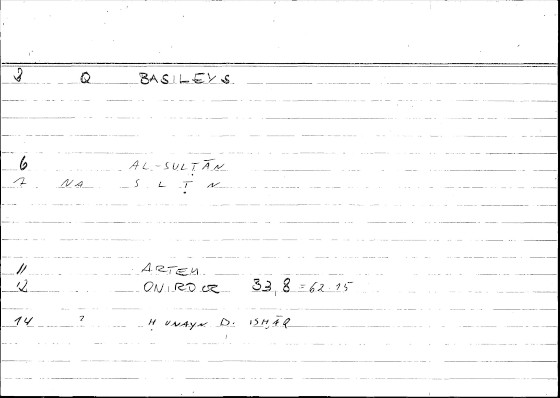 8 Q BASILEYS
6 AL-SULṬĀN
7 NA S L Ṭ N
11 ARTEM.
12 ONIROCR 33,8 = 62.15
14 ? ḤUNAYN B. ISḤĀQ